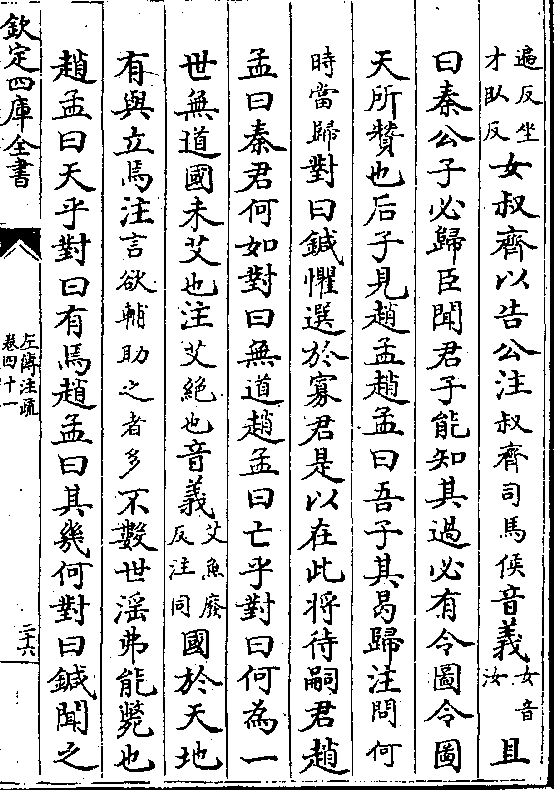 遍反坐
才臥反
女叔齊以告公注叔齊司馬侯音義
女音
汝
且
曰秦公子必歸臣聞君子能知其過必有令圖令圖
天所贊也后子見趙孟趙孟曰吾子其曷歸注問何
時當歸對曰鍼懼選於寡君是以在此將待嗣君趙
孟曰秦君何如對曰無道趙孟曰亡乎對曰何為一
世無道國未艾也注艾絶也音義
艾魚廢
反注同
國於天地
有與立焉注言欲輔助之者多不數世淫弗能斃也
趙孟曰天乎對曰有焉趙孟曰其幾何對曰鍼聞之
欽定四庫全書
左傳注疏
卷四十一
二十六